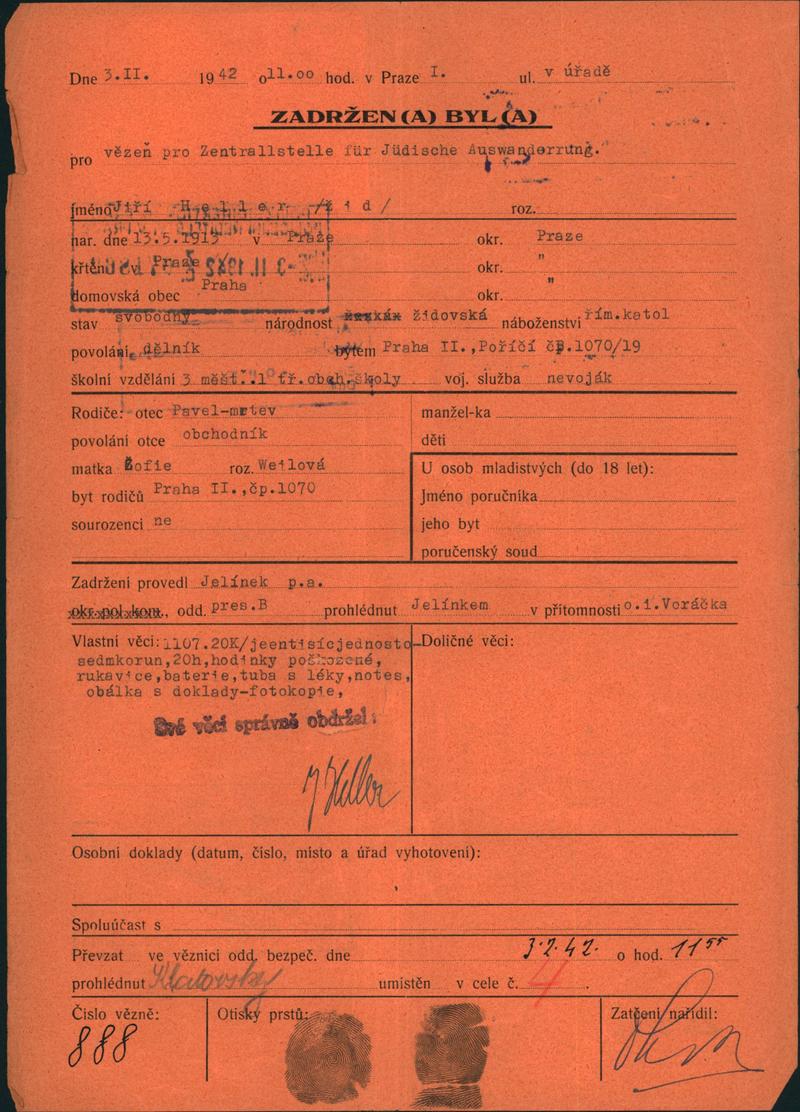 Dne 3.II. 1942 o 11.oo hod. v Praze I. ul. v úřadě
ZADRŽEN(A) BYL(A)
pro vězeň pro Zentrallstelle für Jüdische Auswanderrung.
jméno Jiří Heller /žid/ roz.
nar. dne 13.5.1913 v Praze okr. Praze
křtěn v Praze okr. "
domovská obec Praha okr. "
stav svobodný národnost židovská náboženství řím.katol
povolání dělník bytem Praha II.,Poříčí čp.1070/19
školní vzdělání 3 měšť.1 tř.obch.školy voj. služba nevoják
Rodiče: otec Pavel-mrtev
povolání otce obchodník
matka Žofie roz. Weilová
byt rodičů Praha II.,čp.1070
sourozenci ne
manžel-ka
děti
U osob mladistvých (do 18 let):
Jméno poručníka
jeho byt
poručenský soud
Zadržení provedl Jelínek p.a.
okr. pol. kom., odd. pres.B prohlédnut Jelínkem v přítomnosti o.i.Voráčka
Vlastní věci: 1107.20K/jeentisícjednosto
sedmkorun,20h,hodinky poškozené,
rukavice,baterie,tuba s léky,notes,
obálka s doklady-fotokopie,
Své věci správně obdržel:
J Heller
Doličné věci:
Osobní doklady (datum, číslo, místo a úřad vyhotovení):
Spoluúčast s
Převzat ve věznici odd. bezpeč. dne 3.2.42. o hod. 11 55
prohlédnut Klatovsky umístěn v cele č. 4.
Číslo vězně:
888
Otisky prstů:
Zatčení nařídil: